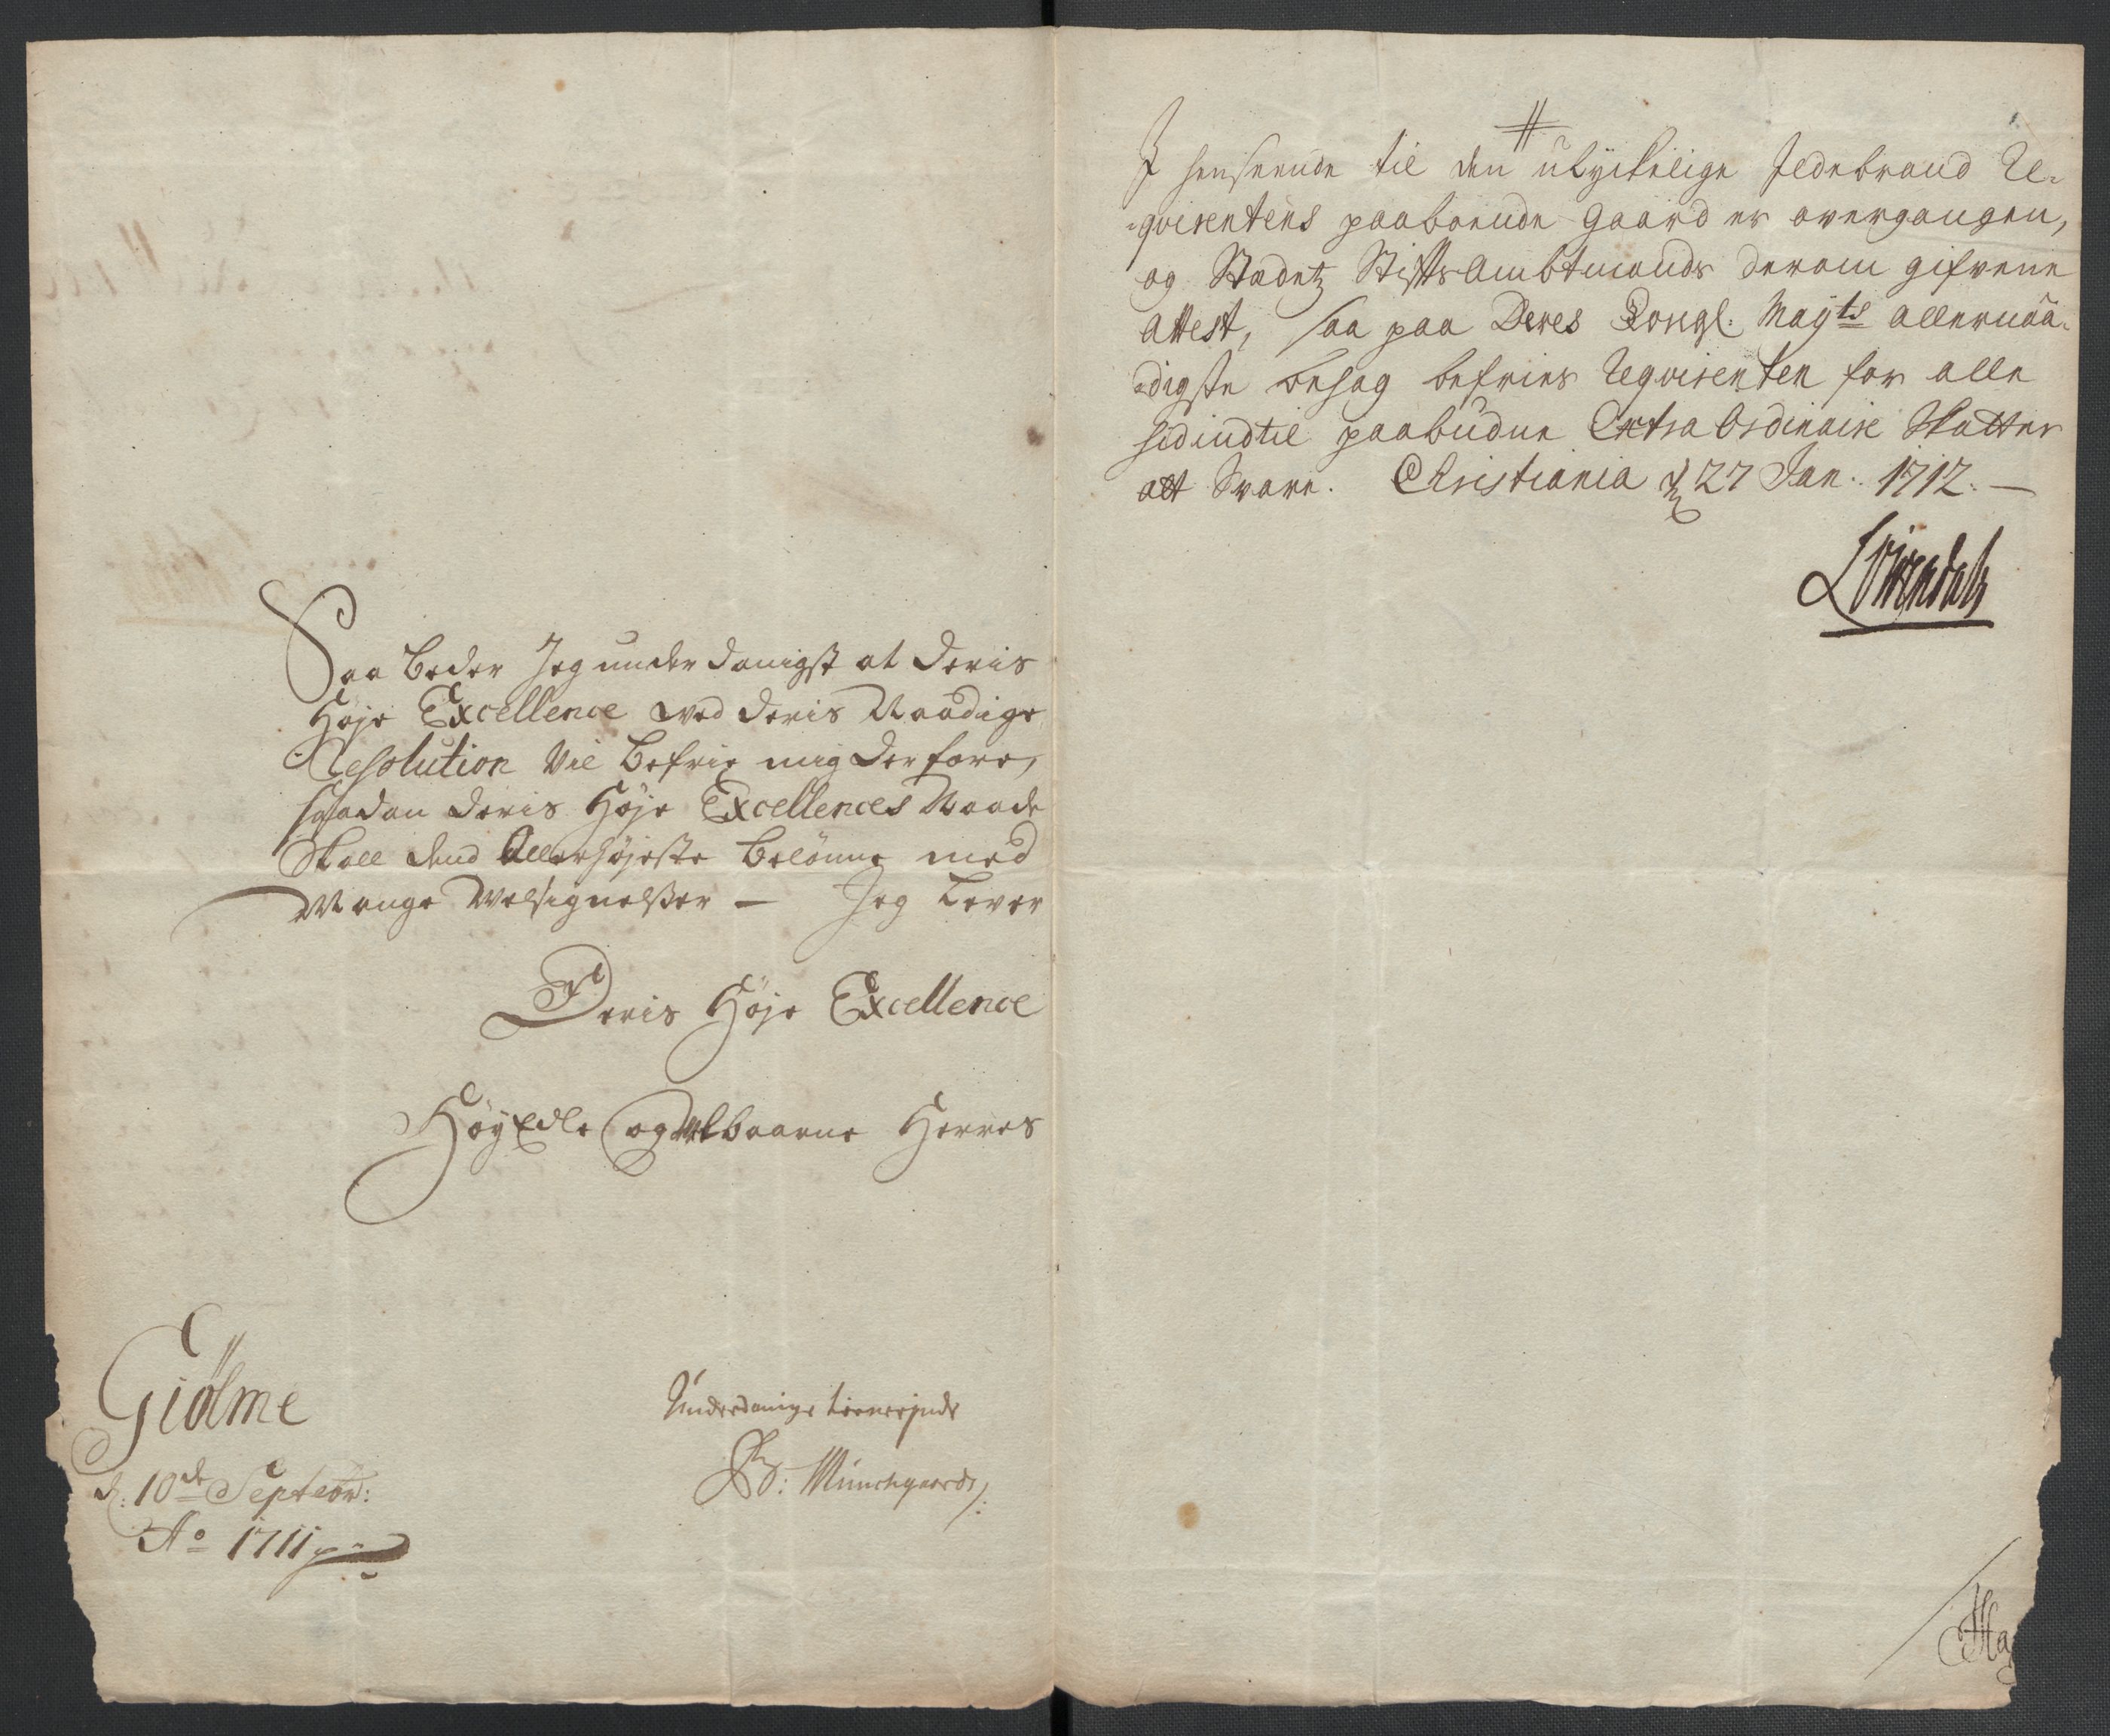 Saa beder Jeg underdanigst at Deris
Høje Excellence ved deris Naadige
Resolution Vil befrie mig derfore,
saadan Deris Høje Excellences Naade
Skall dend Allerhøjeste belönne med
Mange Velsignelser — Jeg Lever
Deris Høje Excellence
HøyEdle og Velbaarne Herres
Giølme
d: 10de Septembr:
Ao 1711
Underdanige tienerinde
Munchgaards/:
#
I henseende til den ulyckelige Ildebrand Re-
-qvirentens paaboende Gaard er overgangen,
og Stædetz StiftsAmbtmands derom gifvene
Attest, saa paa Deres Kongl. Mayts Allernaa-
-digste behag befries Reqvirenten for alle
hidindtil paabudne Extra Ordinaire Skatter
att Svare. Christiania d 27 Jan. 1712. —
Løvendahl